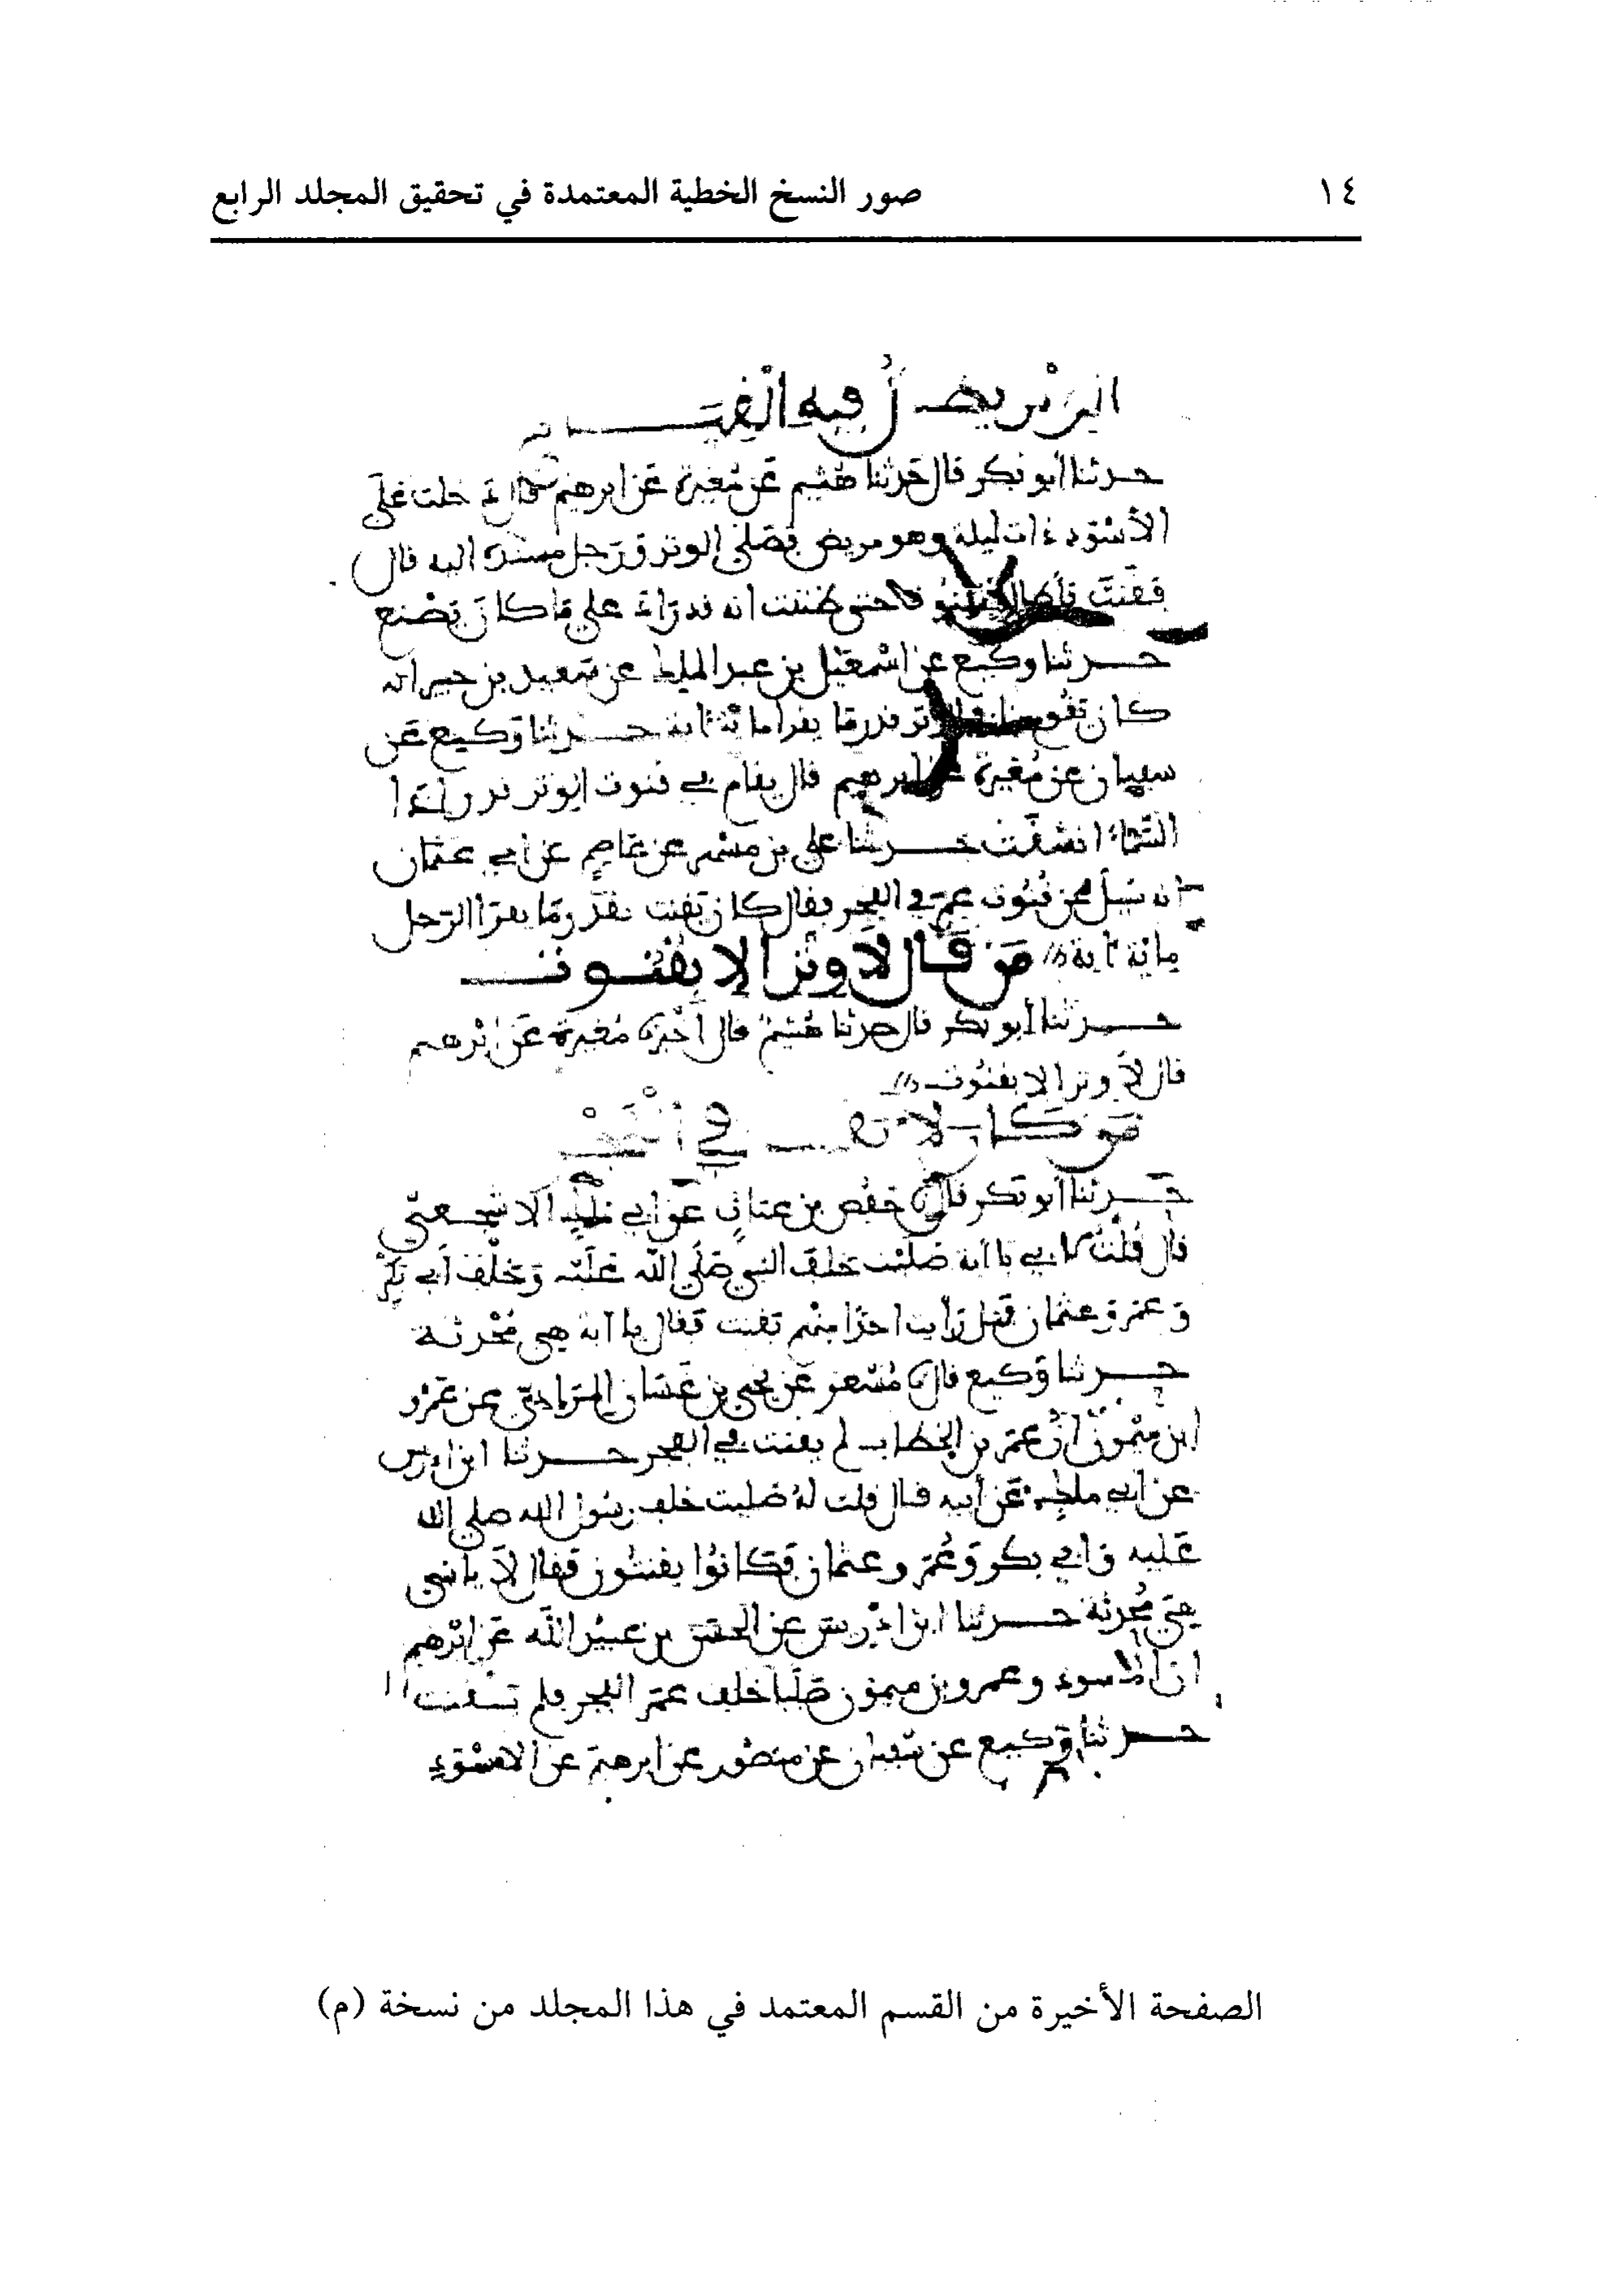 ١٤ صور النسخ الخطية المعتمدة في تحقيق المجلد الرابع
يطيل فيه القيام
حدثنا أبو بكر قال حدثنا هشيم عن مغيرة عن ابرهيم قال دخلت على
الأسود ذات ليلة وهو مريض فصلى الوتر ورجل مسنده اليه قال
فقنت فأطال القنوت حتى ظننت انه قد زاد على ما كان يصنع
حدثنا وكيع عن اسمعيل بن عبد الملك عن سعيد بن جبير انه
كان يقوم الوتر قدر ما يقرا مائة اية حدثنا وكيع عن
سفيان عن مغيرة عن ابرهيم قال يقام في قنوت الوتر قدر اذا
السماء انشقت حدثنا علي بن مسهر عن عاصم عن ابي عثمان
انه سئل عن قنوت عمر في الفجر فقال كان يقنت بقدر ما يقرا الرجل
مائة اية من قال لا وتر الا بقنوت
حدثنا أبو بكر قال حدثنا هشيم قال أخبرنا مغيرة عن ابرهيم
قال لا وتر الا بقنوت
من كان لا يقنت في الفجر
حدثنا أبو بكر قال نا حفص بن غياث عن ابي ملك الاشجعي
قال قلت لابي يا ابه صليت خلف النبي صلى الله عليه وخلف أبي بكر
وعمر وعثمان فهل رأيت احدا منهم يقنت فقال يا ابه هي محدثة
حدثنا وكيع قال نا مسعر عن يحيى بن غسان المرادي عن عمرو
ابن ميمون أن عمر بن الخطاب لم يقنت في الفجر حدثنا ابن ادريس
عن ابي ملك عن أبيه قال قلت له صليت خلف رسول الله صلى الله
عليه وابي بكر وعمر وعثمان فكانوا يقنتون فقال لا يا بني
هي محدثة حدثنا ابن ادريس عن الحسن بن عبيد الله عن ابرهيم
ان الاسود وعمرو بن ميمون صليا خلف عمر الفجر فلم يقنت
حدثنا وكيع عن سفيان عن منصور عن ابرهيم عن الاسود
الصفحة الأخيرة من القسم المعتمد في هذا المجلد من نسخة (م)